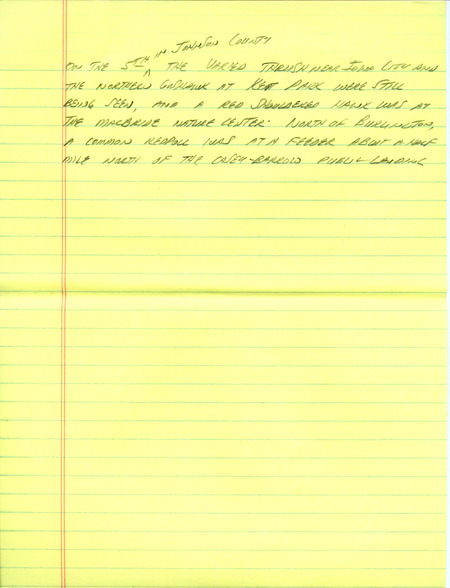 IN JOHNSON COUNTY
ON THE 5TH ^ THE VARIED THRUSH NEAR IOWA CITY AND
THE NORTHERN GOSHAWK AT KENT PARK WERE STILL
BEING SEEN, AND A RED SHOULDERED HAWK WAS AT
THE MACBRIDE NATURE CENTER. NORTH OF BURLINGTON,
A COMMON REDPOLL WAS AT A FEEDER ABOUT A HALF
MILE NORTH OF THE PUBLIC LANDING